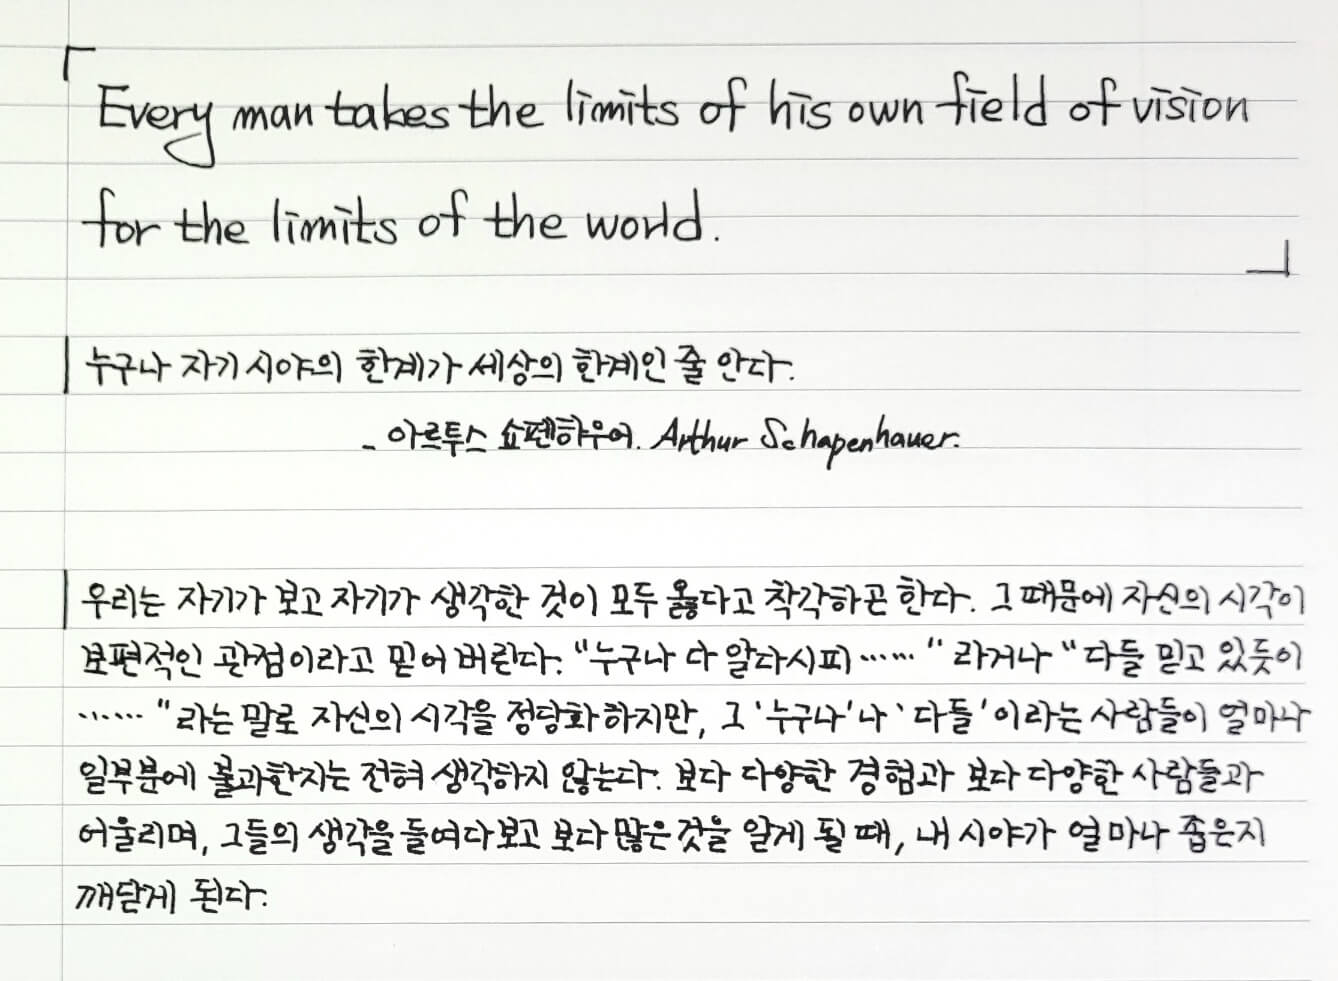 「Every man takes the limits of his own field of vision
for the limits of the world.」
누구나 자기 시야의 한계가 세상의 한계인 줄 안다.
- 아르투스 쇼펜하우어. Arthur Schapenhauer.
우리는 자기가 보고 자기가 생각한 것이 모두 옳다고 착각하곤 한다. 그 때문에 자신의 시각이
보편적인 관점이라고 믿어 버린다. "누구나 다 알다시피……" 라거나 "다들 믿고 있듯이
……"라는 말로 자신의 시각을 정당화하지만, 그 '누구나'나 '다들'이라는 사람들이 얼마나
일부분에 불과한지는 전혀 생각하지 않는다. 보다 다양한 경험과 보다 다양한 사람들과
어울리며, 그들의 생각을 들여다보고 보다 많은 것을 알게 될 때, 내 시야가 얼마나 좁은지
깨닫게 된다.